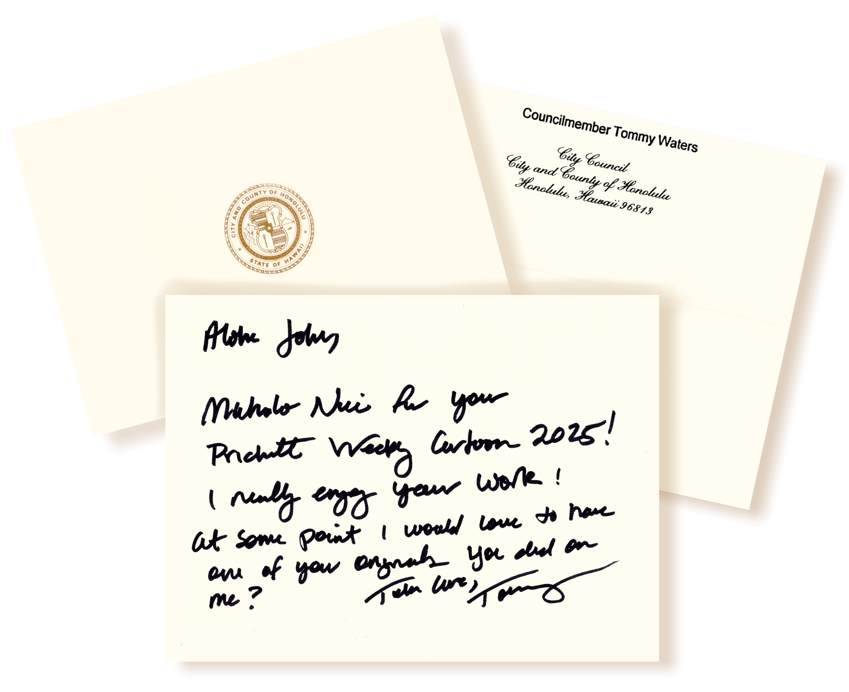 CITY AND COUNTY OF HONOLULU
STATE OF HAWAII
Councilmember Tommy Waters
City Council
City and County of Honolulu
Honolulu, Hawaii 96813
Aloha John
Mahalo Nui for your
Prichett Weekly Cartoon 2025!
I really enjoy your work!
at some point I would love to have
one of your originals you did on
me? Take Care, Tommy